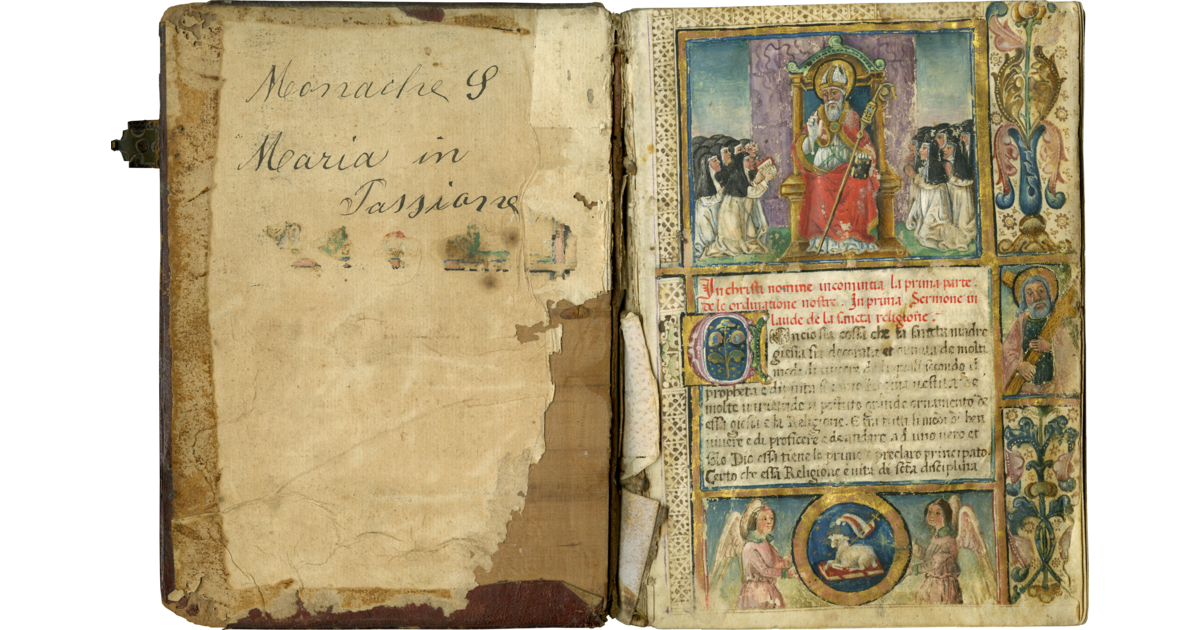 Monache S
Maria in
Passione
In christi nomine incomintia la prima parte.
de le ordinatione nostre. In prima Sermone in
laude de la sancta religione.
Concio sia cossa che la sancta madre
giesia sia decorata et ornata de molti
modi di vivere de li quali secondo el
propheta e
molte
essa giesia e la Religione. E fra tutti li modi di ben
vivere e di proficere e de andare ad uno vero et
solo Dio essa tiene lo primo e preclaro principato
Certo che essa Religione e vita di scta disciplina